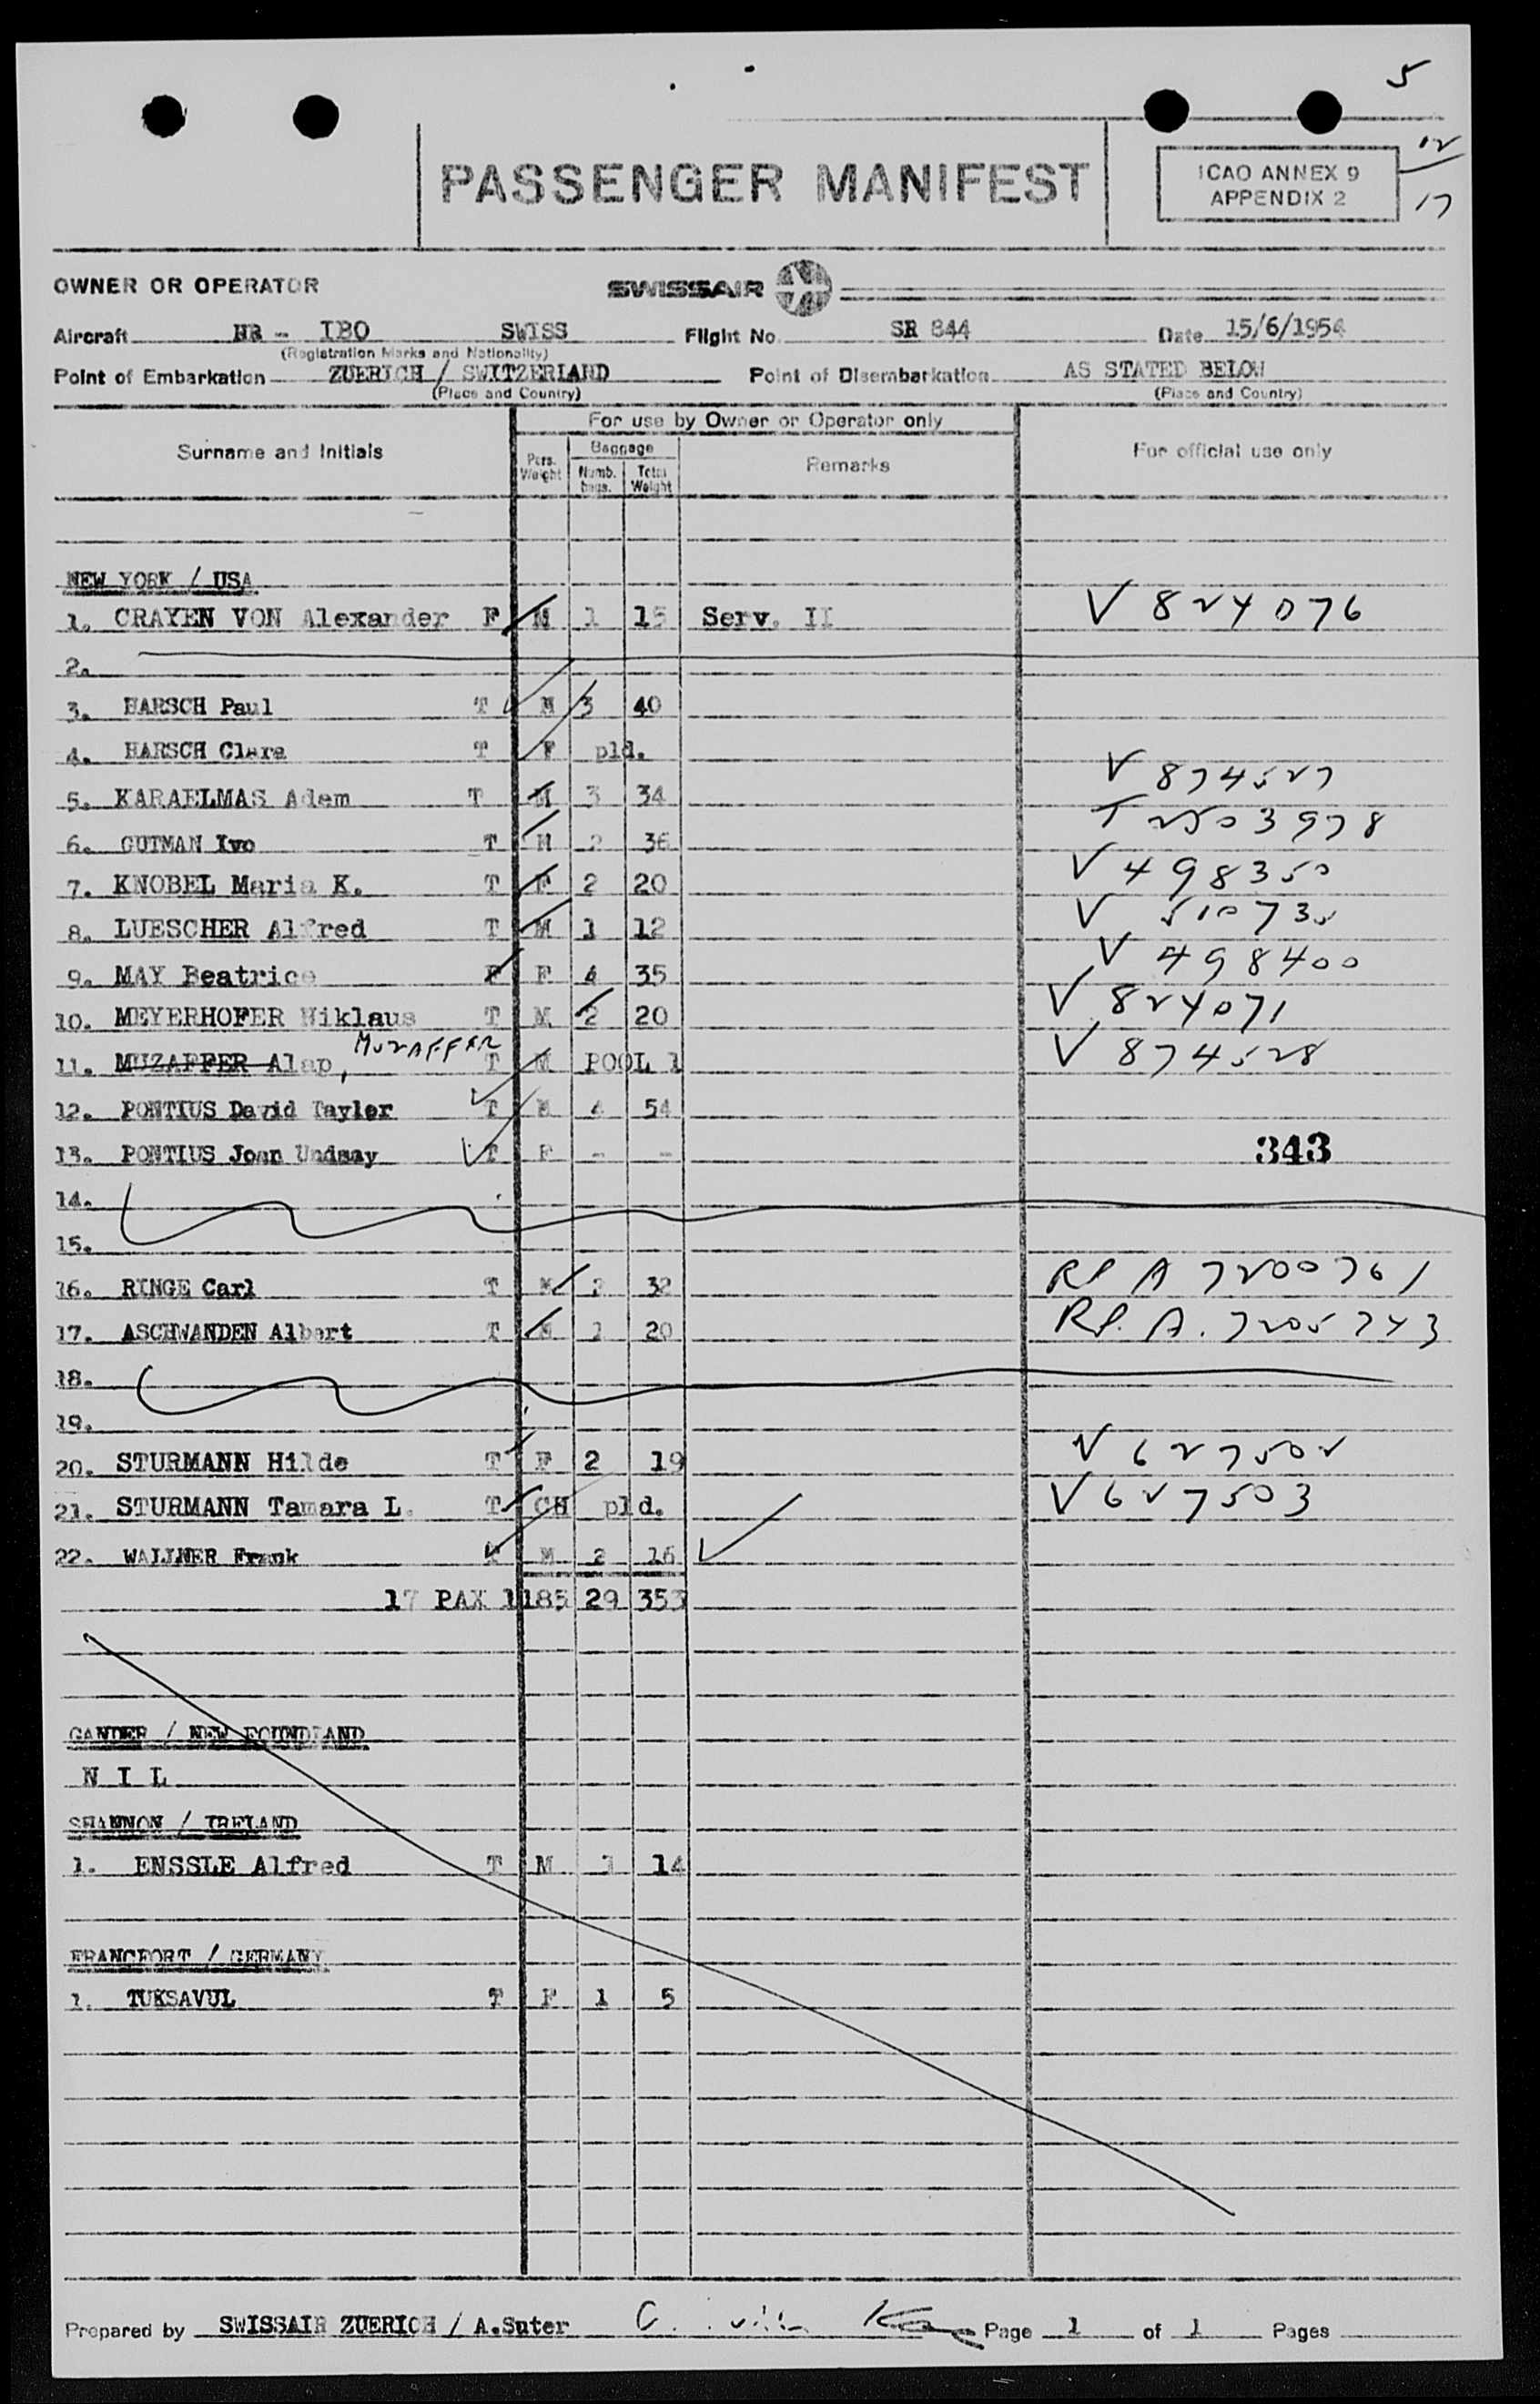 5
PASSENGER MANIFEST
ICAO ANNEX 9
APPENDIX 2
12
17
OWNER OR OPERATOR SWISSAIR
Aircraft HB - IBO SWISS Flight No. SR 844 Date 15/6/1954
(Registration Marks and Nationality)
Point of Embarkation ZUERICH / SWITZERLAND Point of Disembarkation AS STATED BELOW
(Place and Country) (Place and Country)
For use by Owner or Operator only
Surname and Initials Pers. Weight Baggage Numb. bags. Total Weight Remarks For official use only
NEW YORK / USA
1. CRAYEN VON Alexander F M 1 15 Serv. II V 824076
2.
3. HARSCH Paul T M 3 40
4. HARSCH Clara T F pld.
5. KARAELMAS Adem T M 3 34 V 874527
6. GUTMAN Ivo T M 2 36 T 2503978
7. KNOBEL Maria K. T F 2 20 V 498350
8. LUESCHER Alfred T M 1 12 V 510735
9. MAY Beatrice F F 4 35 V 498400
10. MEYERHOFER Niklaus T M 2 20 V 824071
11. MUZAFFER Alap, MUZAFFER T M POOL 1 V 874528
12. PONTIUS David Tayler T M 4 54
13. PONTIUS Joan Undsay T F - - 343
14.
15.
16. RINGE Carl T M 2 32 RP A 7200761
17. ASCHWANDEN Albert T M 1 20 RP. A. 7205743
18.
19.
20. STURMANN Hilde T F 2 19 V 627502
21. STURMANN Tamara L. T CH pld. V 627503
22. WALLNER Frank T M 2 16
17 PAX 1185 29 353
GANDER / NEW FOUNDLAND
N I L
SHANNON / IRELAND
1. ENSSLE Alfred T M 1 14
FRANCFORT / GERMANY
1. TUKSAVUL T F 1 5
Prepared by SWISSAIR ZUERICH / A.Suter Page 1 of 1 Pages